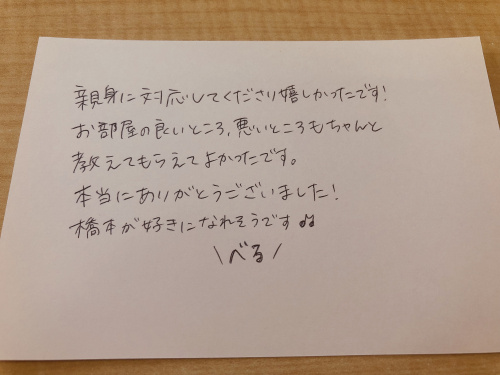 親身に対応してくださり嬉しかったです!
お部屋の良いところ、悪いところもちゃんと
教えてもらえてよかったです。
本当にありがとうございました!
橋本が好きになれそうです♫
\べる/